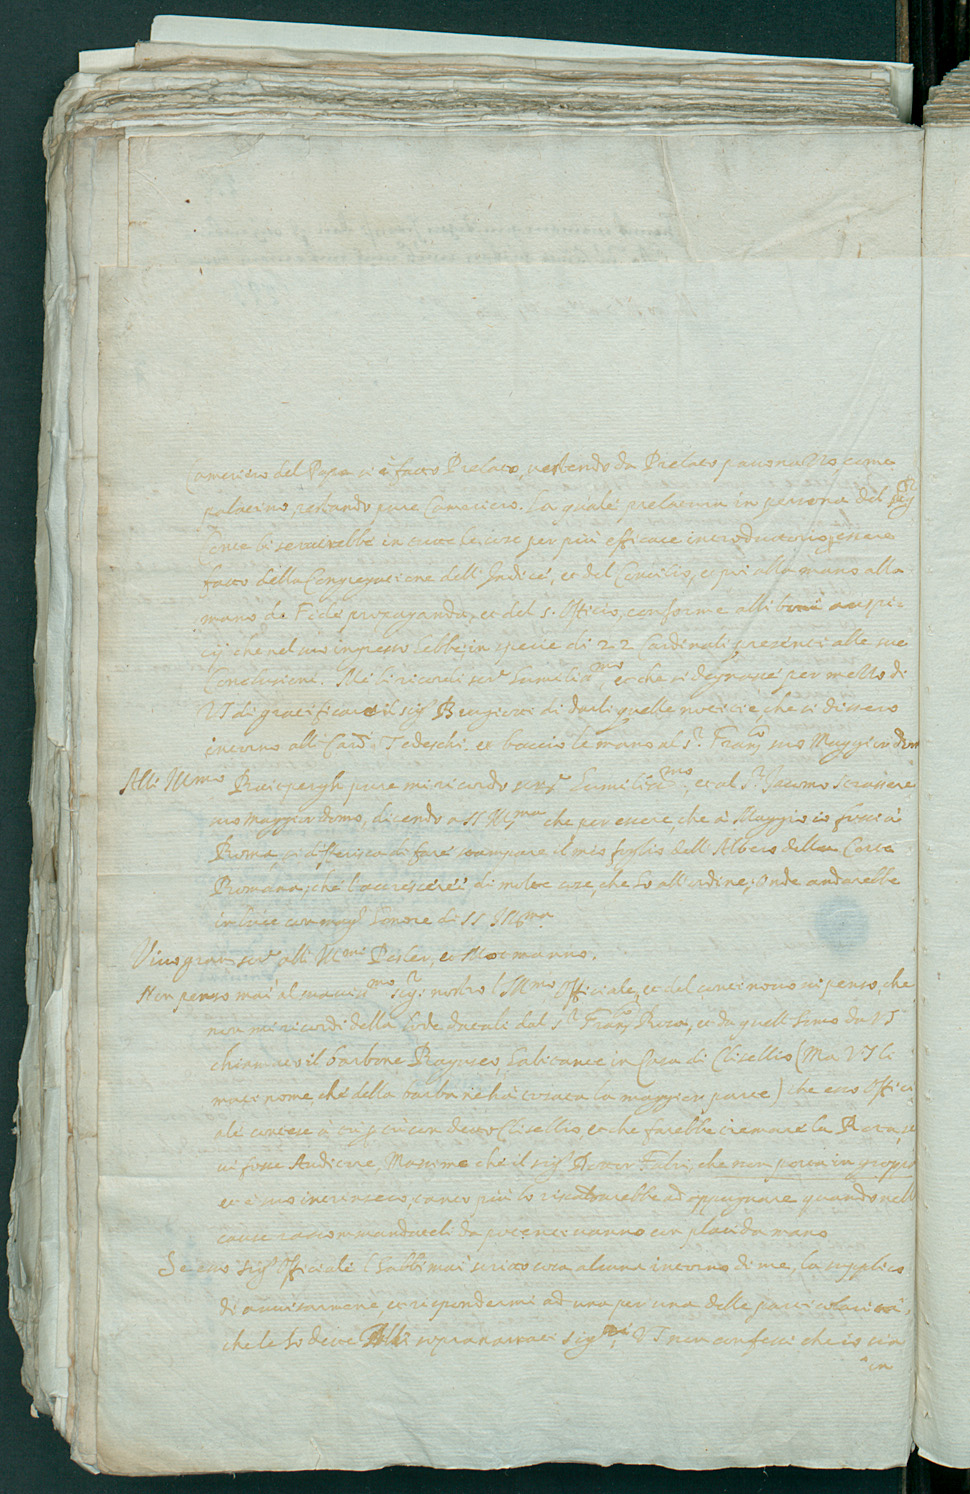 Cameriero del Papa si è fatto Prelato, vestendo da Prelato pavonazzo come
palatino, restando pure Cameriero. La quale prelatura in persona del Sig.r
Conte li servirebbe in tutte le cose per più efficace introduttorio, essere
fatto della Congregatione delli Indici, et del Concilio, et poi alla mano alla
mano de Fide propaganda, et del S. Officio, conforme alli boni auspi=
cij che nel suo ingresso hebbe in specie di 22 Cardinali, presenti alle sue
Conclusioni. Me li ricordi ser.r humiliss.mo et che si degnasse per mezzo di
VS di gratificare il sig.r Brugiotti di darli quelle notitie, che si dissero
intorno alli Card. Tedeschi. et baccio le mano al S.r Franc.o suo Maggiordomo
Alli Ill.mo pure mi ricordo ser.r humiliss.mo, et al S.r Jacomo
suo maggiordomo, dicendo a SS Ill.ma che per essere, che à Maggio io fussi à
Roma, si differisca di fare stampare il mio foglio dell'Albero della Corte
Romana, ché l'accrescerei di molte cose, che ho all'ordine; Onde andarebbe
in luce con magg.r honore di SS Ill.ma.
Vivo gran ser.r alli Pesler, et
Non penso mai al nostro l'Ill.mo Officiale, et del continovo vi penso, che
non mi ricordi della lode datali dal S.r Franc.o Rosa, et da quell'homo da VS
chiamato il barbone Raguseo, habitante in Casa di Clisellio (Ma VS li
muti nome, ché della barba ne hà tosata la maggior parte) che esso Offici=
ale con detto Clisellio, et che farebbe tremare la Rota, se
vi fosse Auditore, Massime ché il sig.r che non porta in groppa
et è suo intrinseco, tanto più lo riscaldarebbe ad oppugnare quando nelle
cause raccommandateli da potenti vanno con placida mano
Se esso sig.r Officiale l'habbi mai scritto cosa alcuna intorno di me, la supplico
di avvisarmene, et rispondermi ad una per una delle particolarità,
che le ho dette Alli sopranarrati Sig.ri VS non confessi che io sia
in